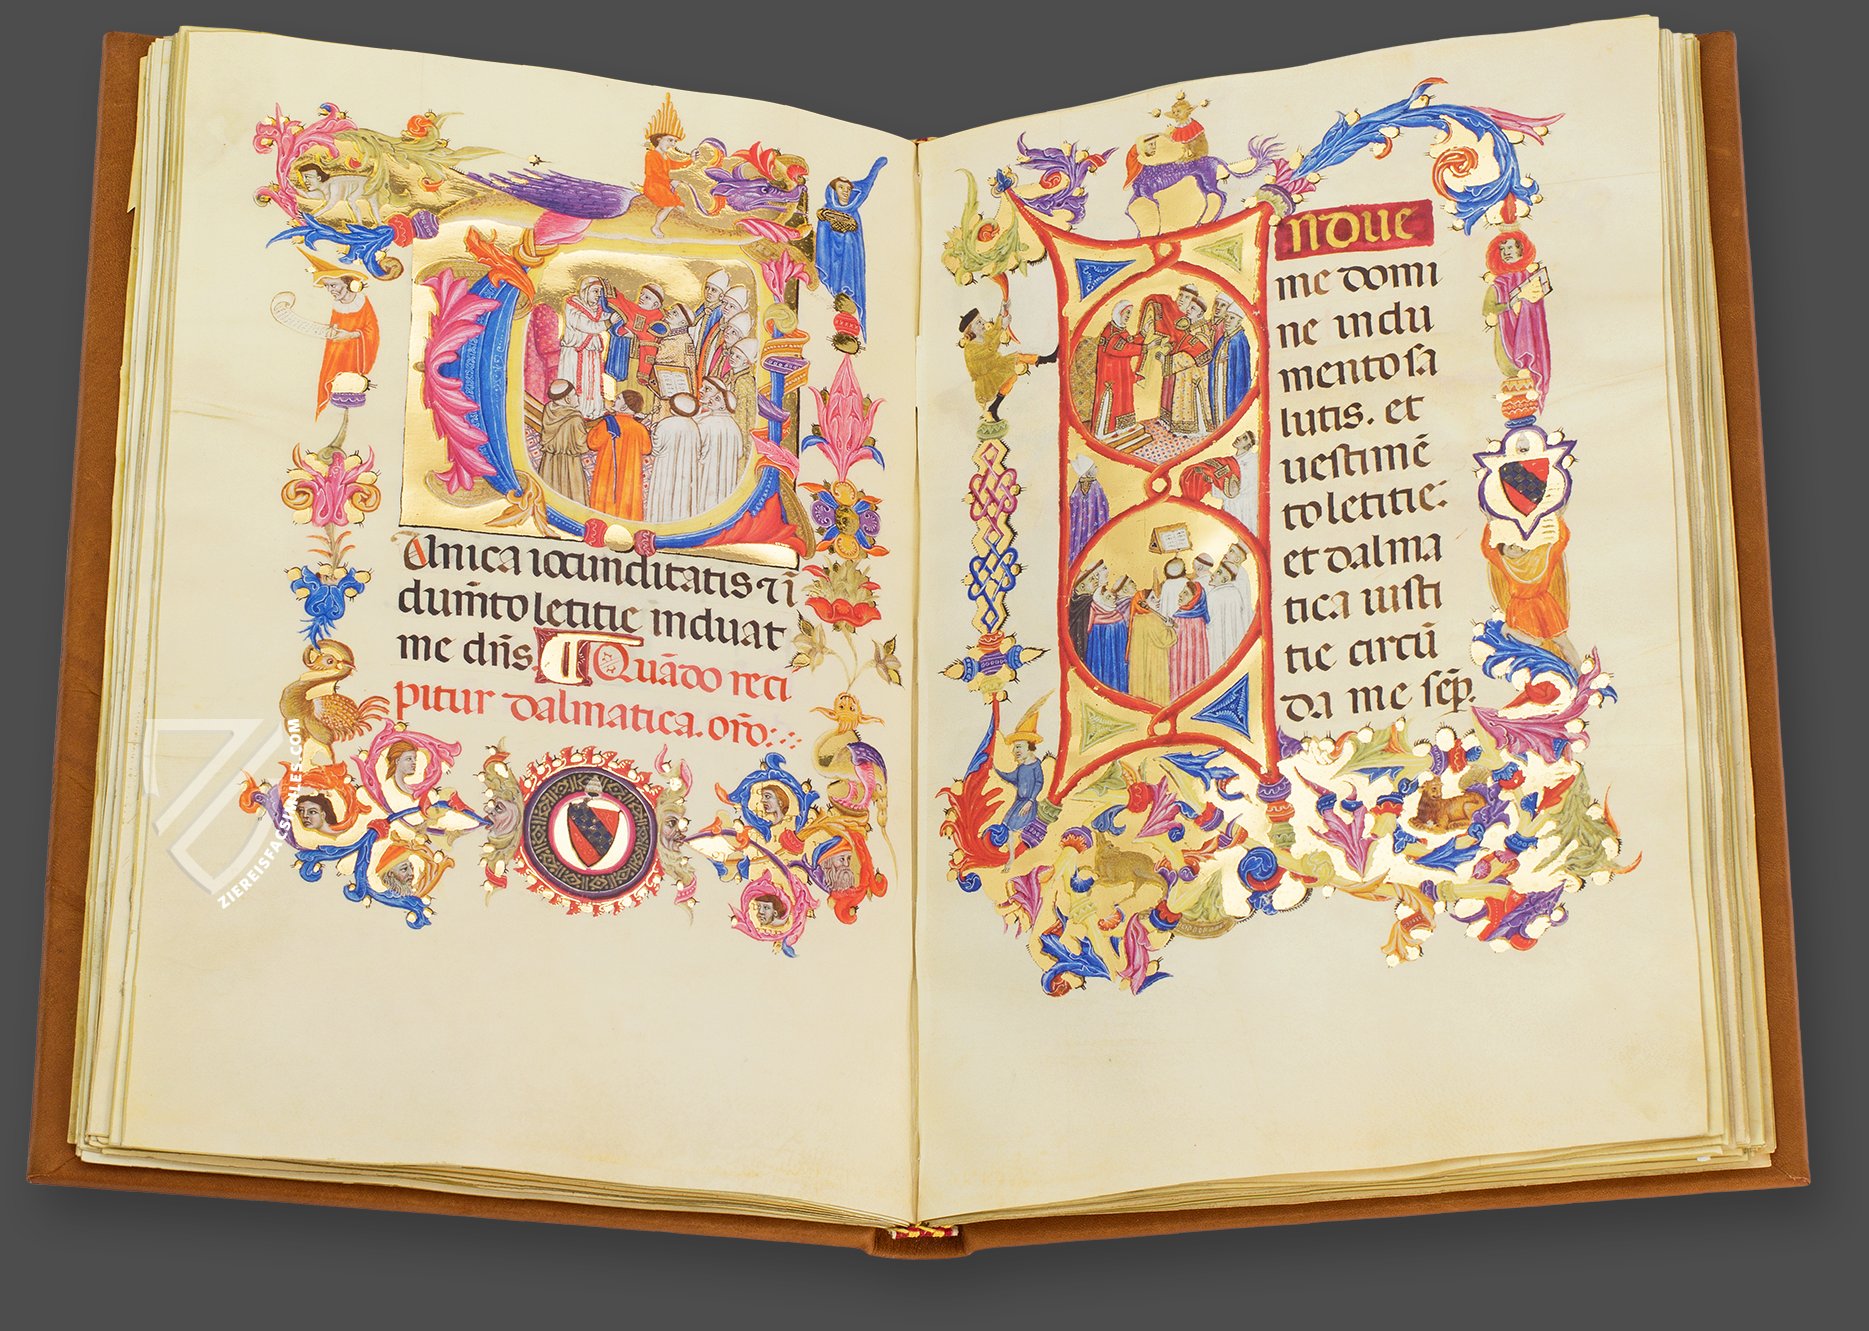 Unica iocunditatis ⁊ ī
dum̄to letitie induat
me dn̄s. Quādo reci
pitur dalmatica. orō:
NDUE
me domi
ne indu
mento sa
lutis. et
uestimē
to letitie:
et dalma
tica iusti
tie circū
da me sēp.
ZIEREISFACSIMILES.COM